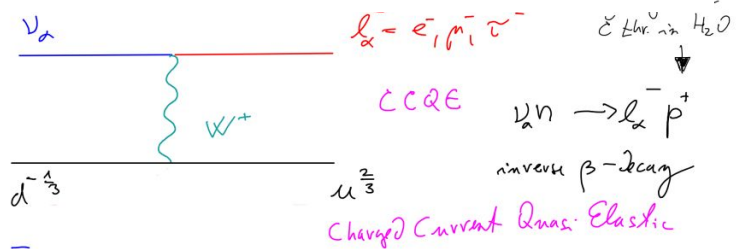 ν_α
ℓ_α^- = e^-, μ^-, τ^-
Č thr. in H₂O
CCQE
W⁺
ν_α n → ℓ_α^- p⁺
inverse β-decay
d^{-1/3}
u^{2/3}
Charged Current Quasi Elastic